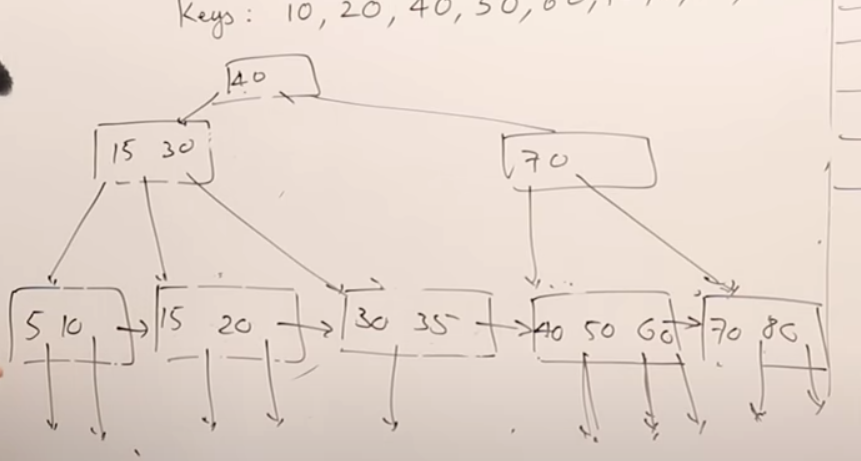 Keys: 10, 20, 40, 50, 60,
40
15 30
70
5 10
15 20
30 35
40 50 60
70 80